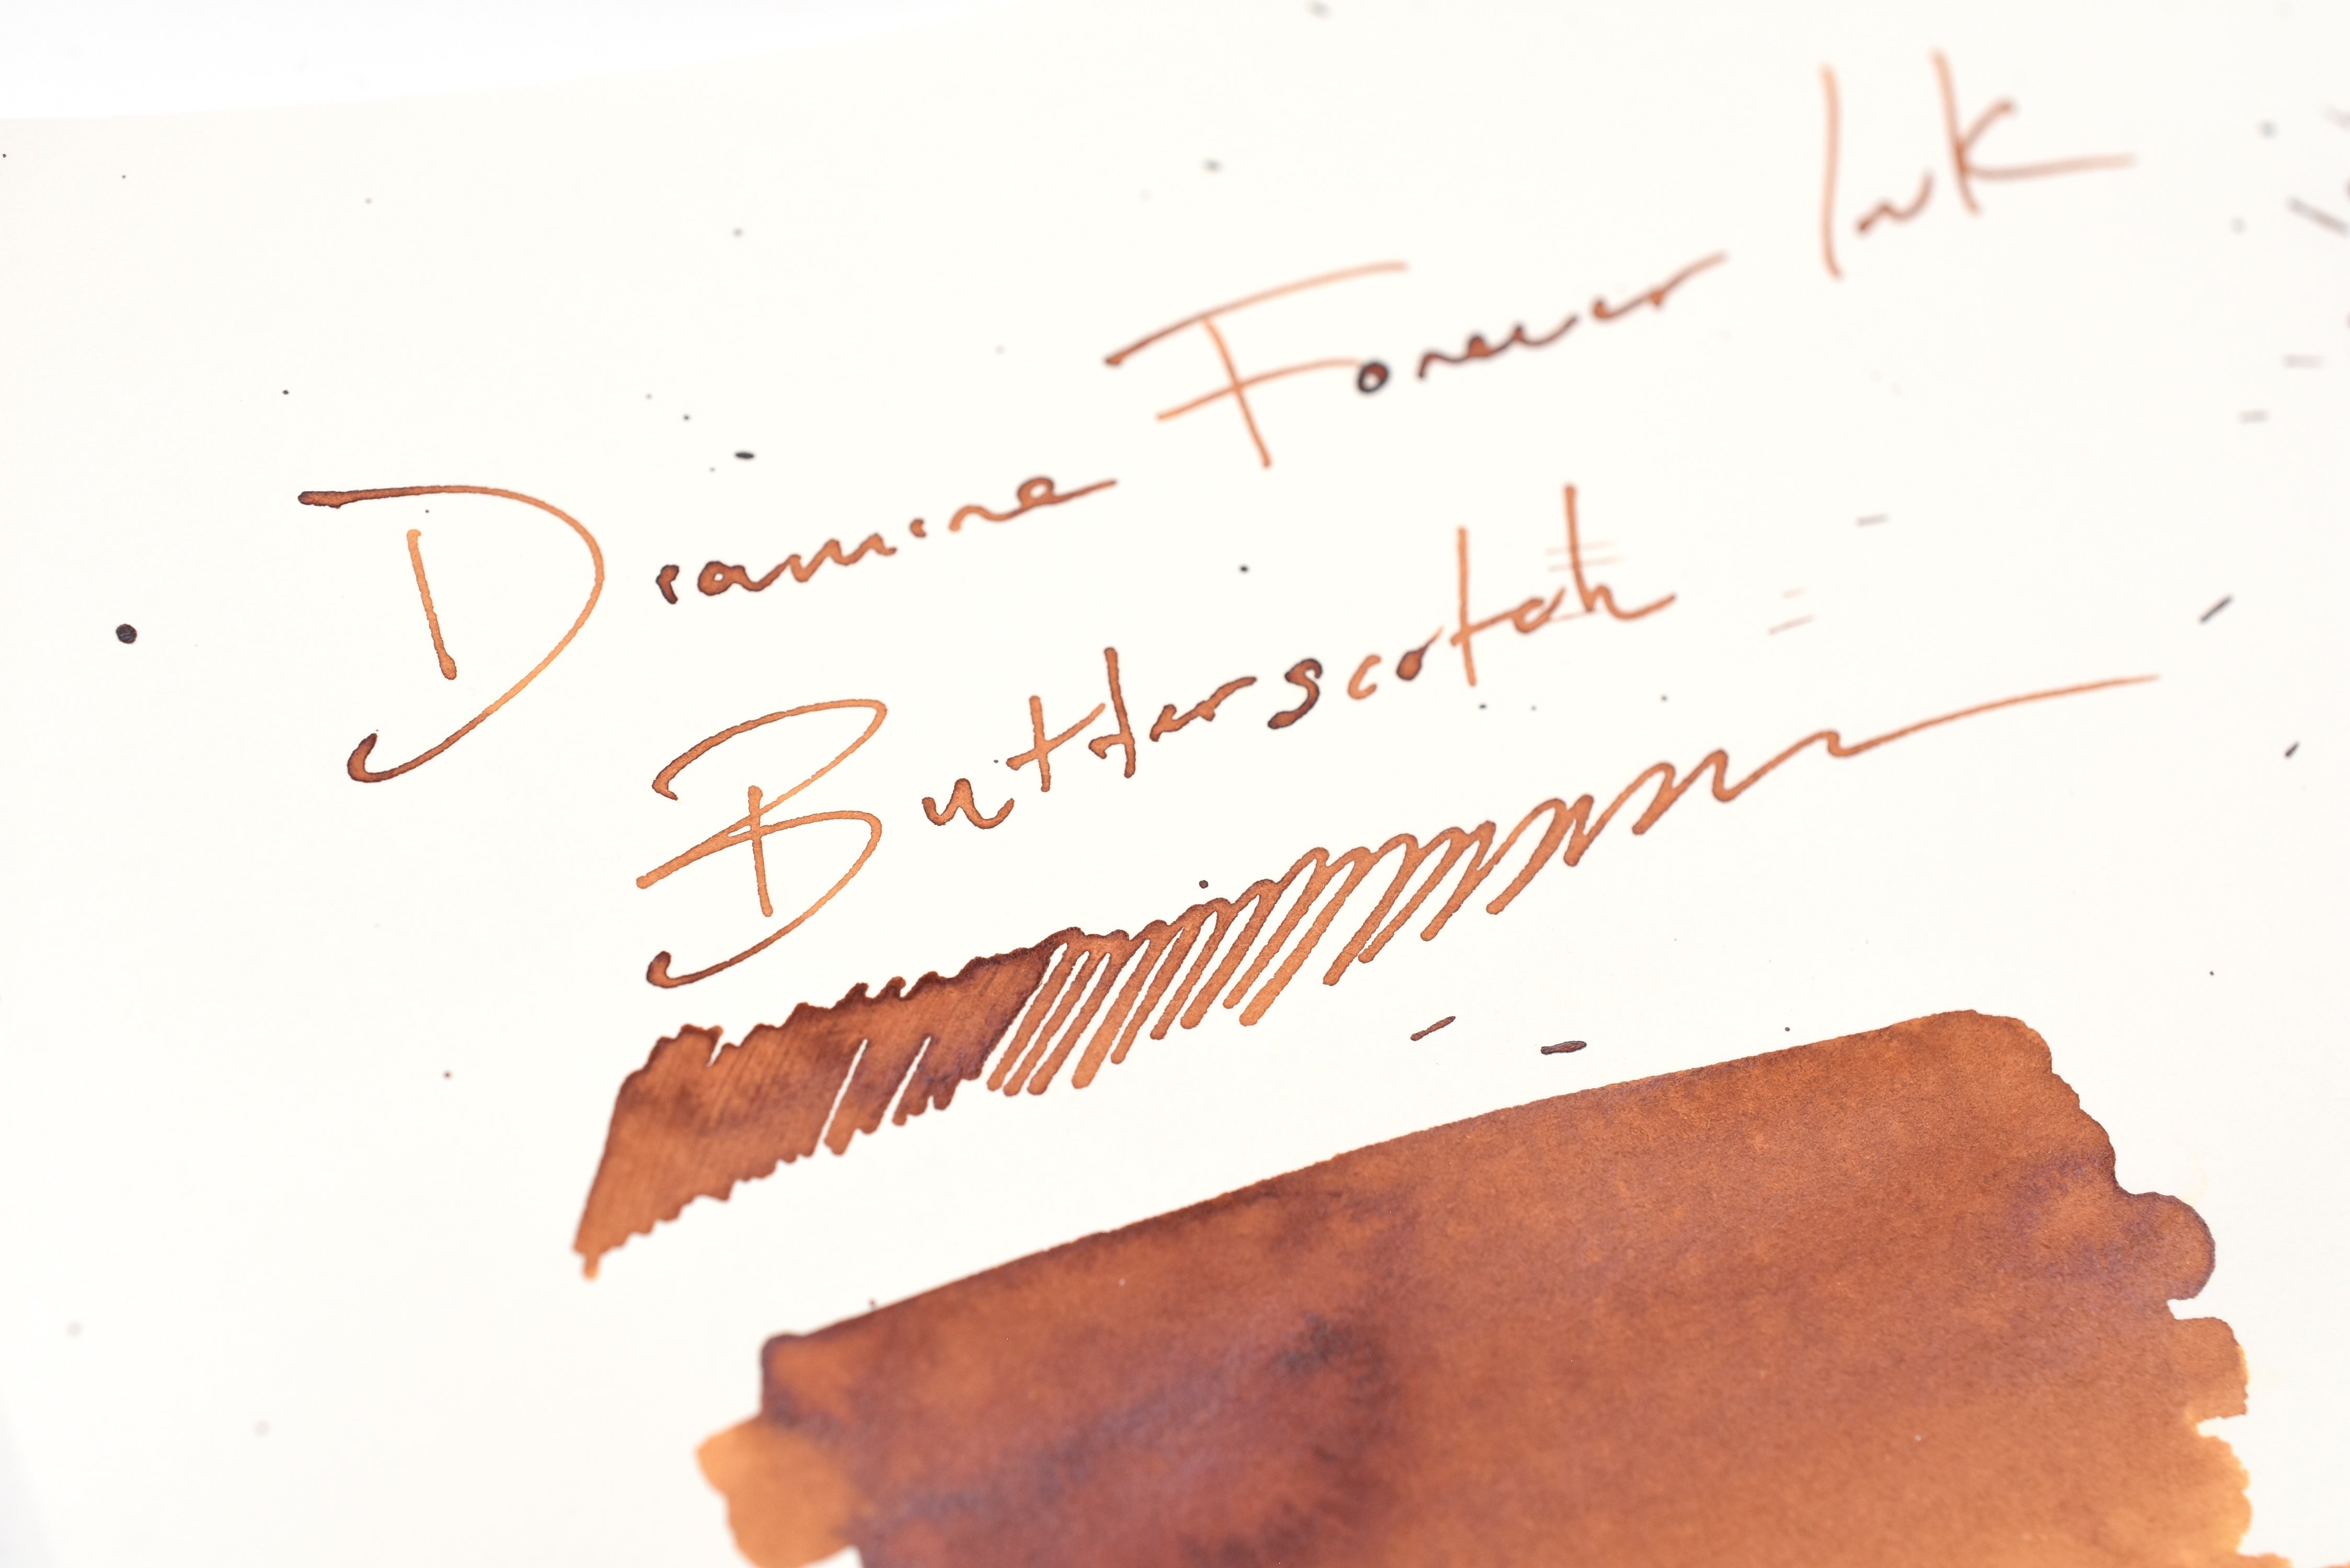 Diamine Forever Ink
Butterscotch